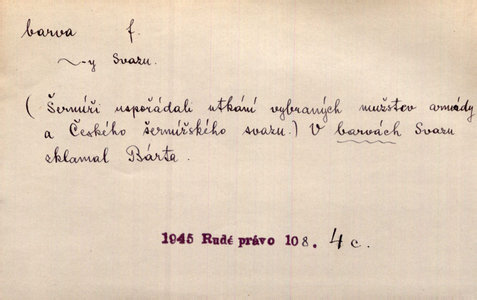 barva f.
~y Svazu.
( Šermíři uspořádali utkání vybraných mužstev armády
a Českého šermířského svazu.) V barvách Svazu
sklamal Bárta.
1945 Rudé právo 108. 4 c.